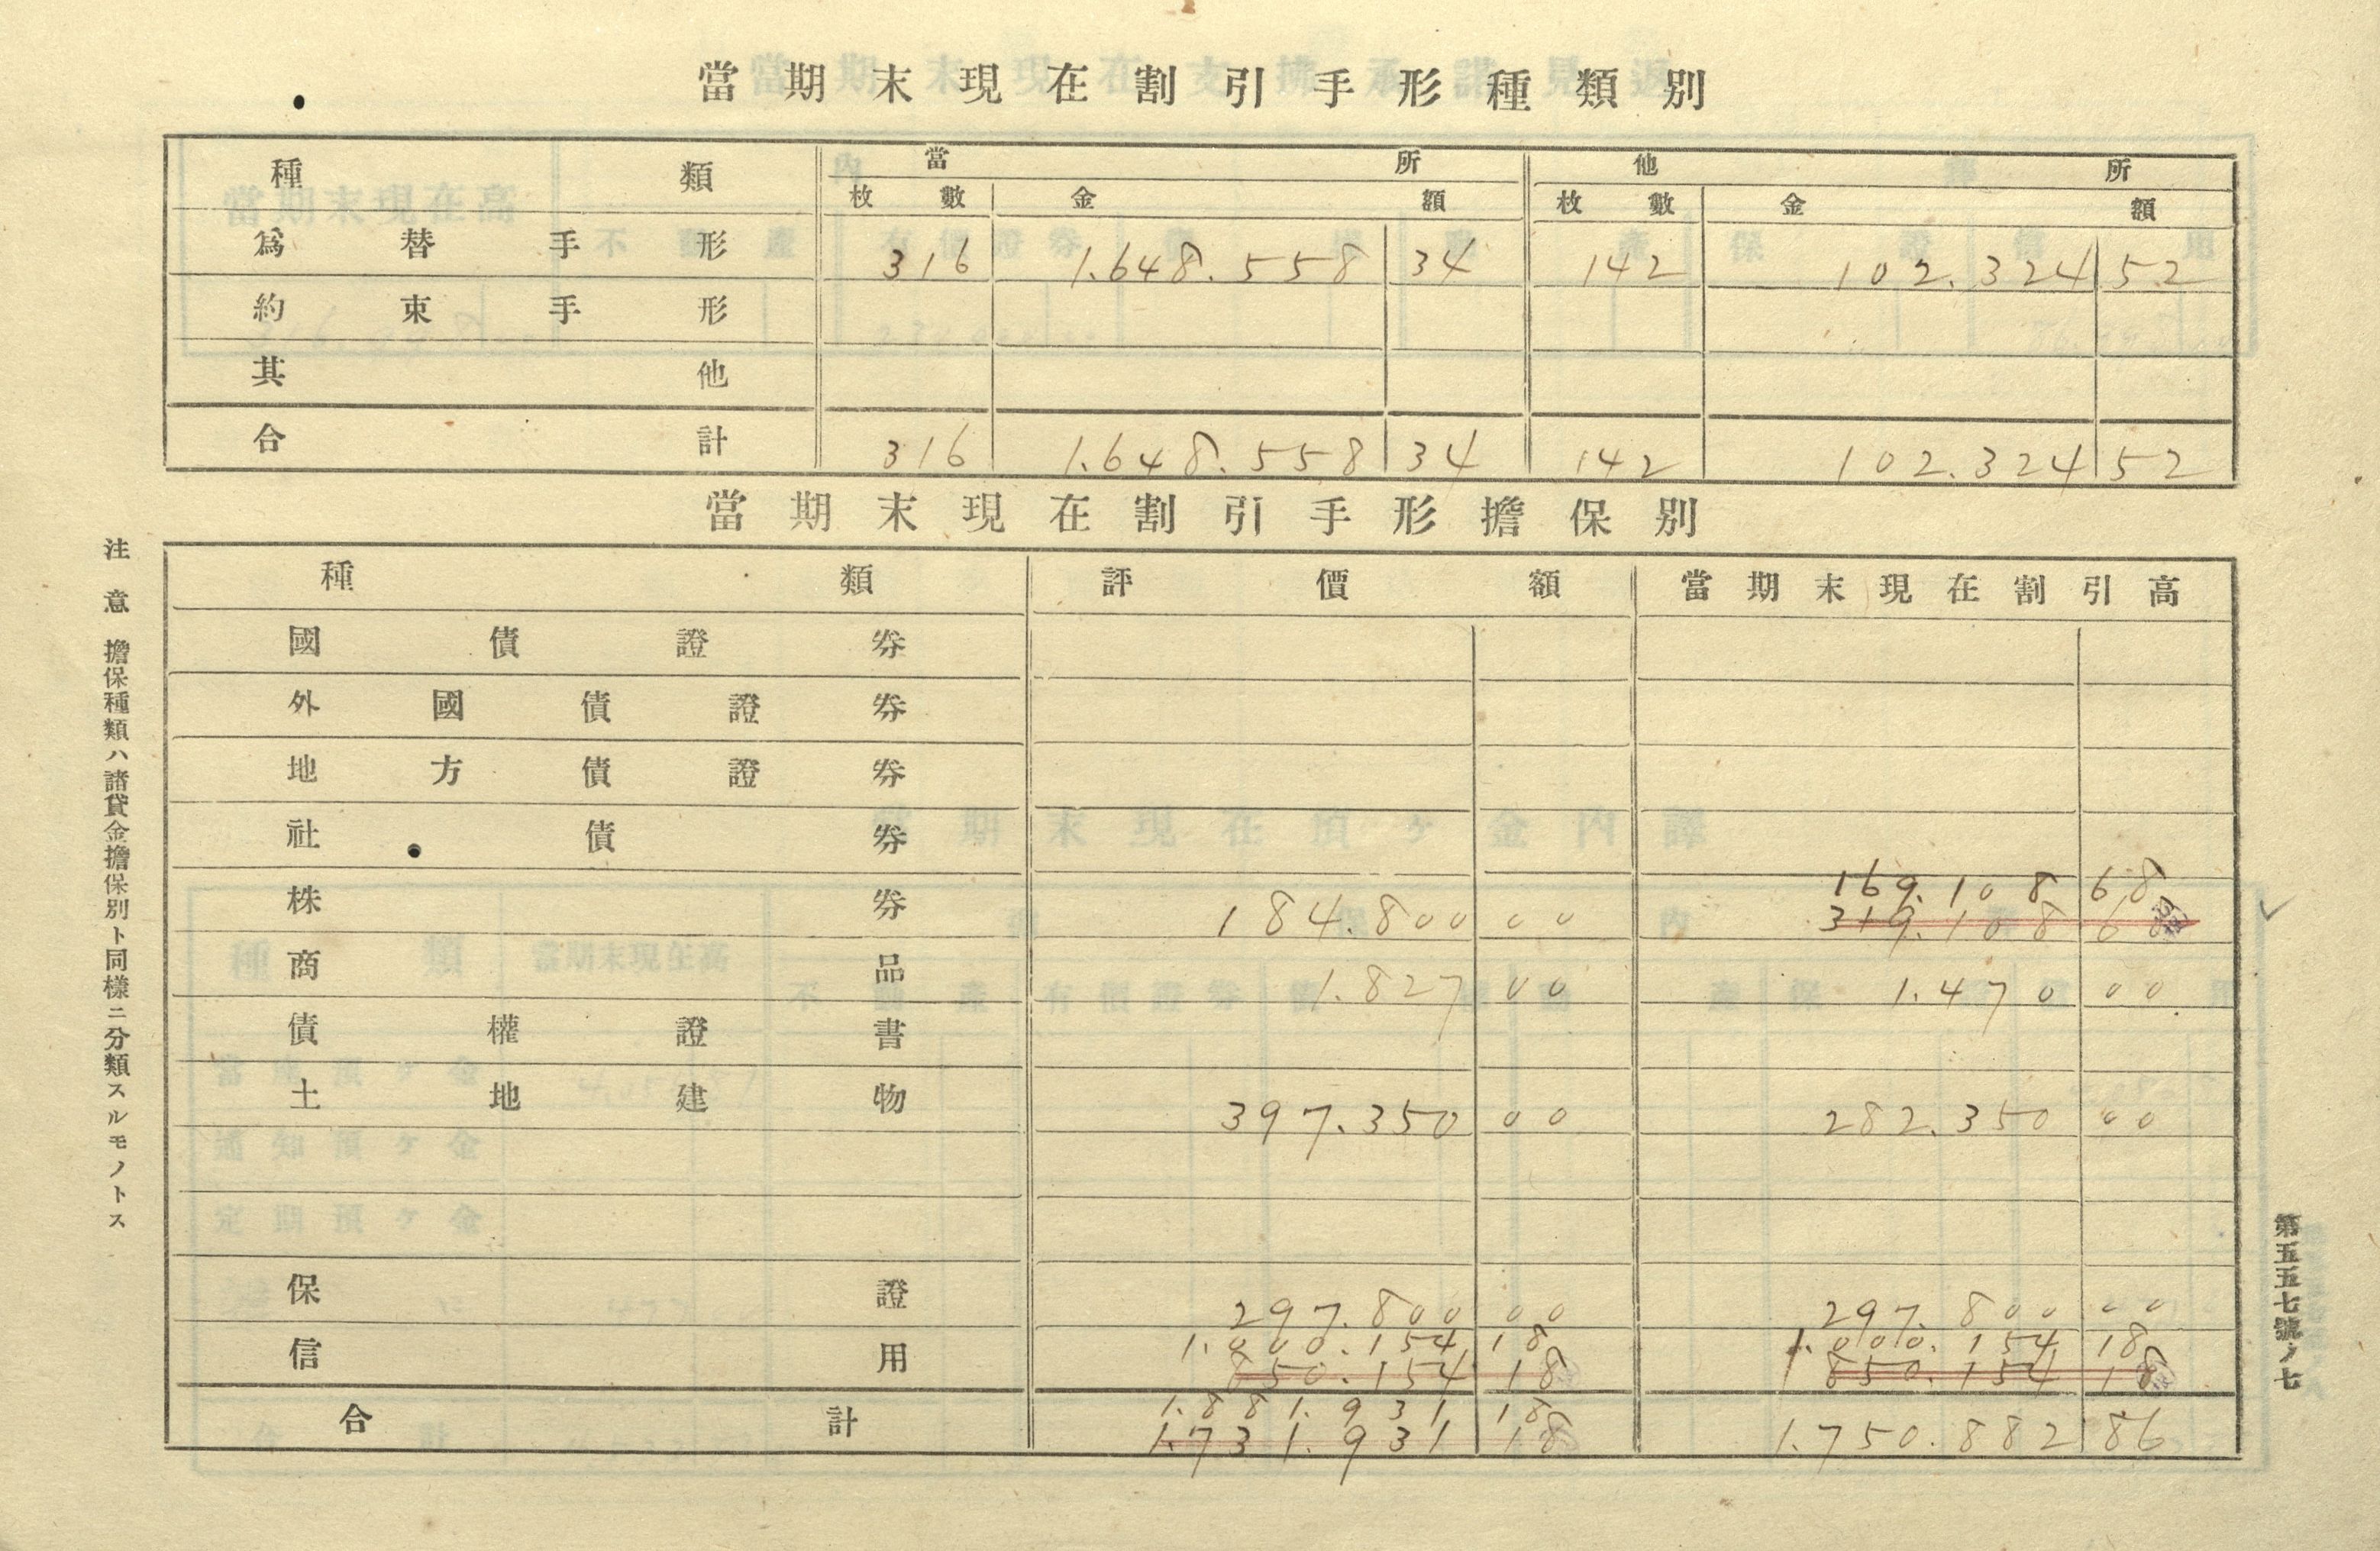 當期末現在割引手形種類別
種類 當所 他所
枚數 金額 枚數 金額
爲替手形 316 1.648.558 34 142 102.324 52
約束手形
其他
合計 316 1.648.558 34 142 102.324 52
當期末現在割引手形擔保別
種類 評價額 當期末現在割引高
國債證券
外國債證券
地方債證券
社債券
169.108 68
株券 184.800 00 319.108 68
商品 1.827 00 1.470 00
債權證書
土地建物 397.350 00 282.350 00
保證 297.800 00 297.800 00
1.000.154 18 1.000.154 18
信用 850.154 18 850.154 18
1.881.931 18
合計 1.731.931 18 1.750.882 86
注意 擔保種類ハ諸貸金擔保別ト同樣ニ分類スルモノトス
第五五七號ノ七